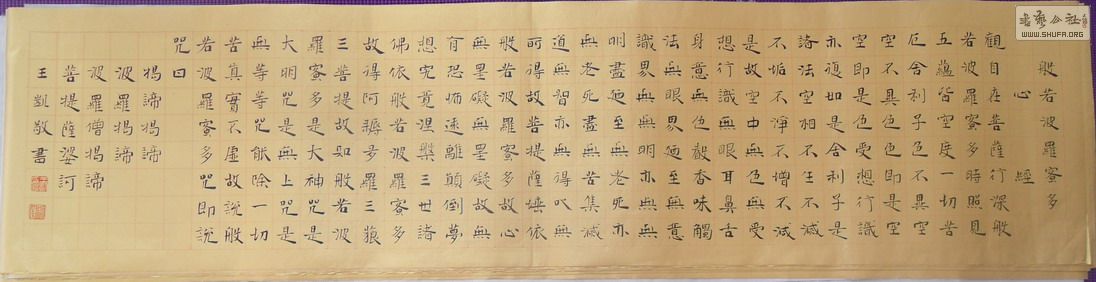 般若波羅蜜多
心經
觀自在菩薩行深般
若波羅蜜多時照見
五蘊皆空度一切苦
厄舍利子色不異空
空不異色色即是空
空即是色受想行識
亦復如是舍利子是
諸法空相不生不滅
不垢不淨不增不減
是故空中無色無受
想行識無眼耳鼻舌
身意無色聲香味觸
法無眼界廼至無意
識界無無明亦無無
明盡廼至無老死亦
無老死盡無苦集滅
道無智亦無得以無
所得故菩提薩埵依
般若波羅蜜多故心
無罣礙無罣礙故無
有恐怖遠離顛倒夢
想究竟涅槃三世諸
佛依般若波羅蜜多
故得阿耨多羅三藐
三菩提故知般若波
羅蜜多是大神咒是
大明咒是無上咒是
無等等咒能除一切
苦真實不虛故說般
若波羅蜜多咒即說
咒曰
揭諦揭諦
波羅揭諦
波羅僧揭諦
菩提薩婆訶
王凱敬書
書藝公社
WWW.SHUFA.ORG